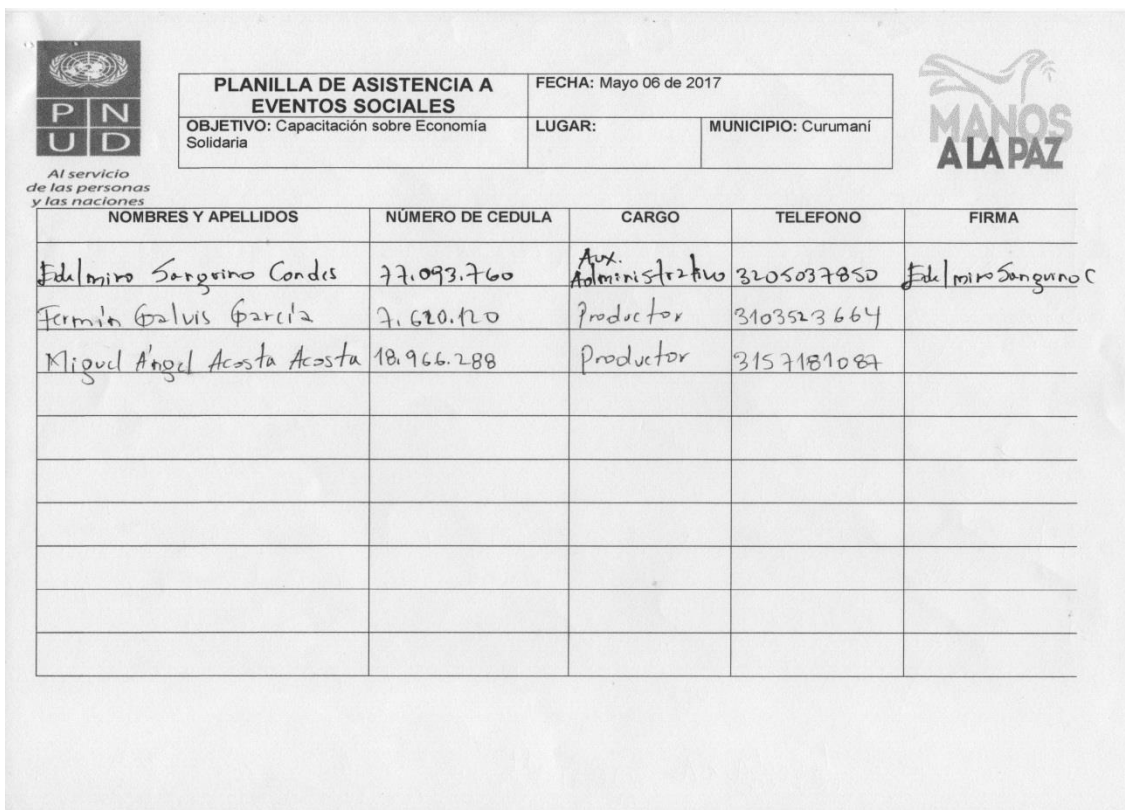 PNUD
Al servicio
de las personas
y las naciones
PLANILLA DE ASISTENCIA A
EVENTOS SOCIALES
FECHA: Mayo 06 de 2017
OBJETIVO: Capacitación sobre Economía
Solidaria
LUGAR:
MUNICIPIO: Curumaní
MANOS
A LA PAZ
NOMBRES Y APELLIDOS NÚMERO DE CEDULA CARGO TELEFONO FIRMA
Edelmiro Sanguino Condes 77.093.760 Aux. Administrativo 3205037850 Edelmiro Sanguino C
Fermín Galvis García 7.620.120 Productor 3103523664
Miguel Ángel Acosta Acosta 18.966.288 Productor 3157181087